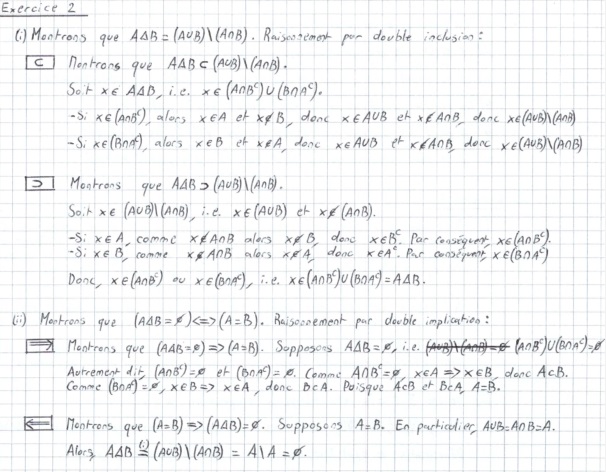 Exercice 2
(i) Montrons que AΔB = (A∪B)\(A∩B). Raisonnement par double inclusion :
⊂ Montrons que AΔB ⊂ (A∪B)\(A∩B).
Soit x ∈ AΔB, i.e. x ∈ (A∩Bᶜ)∪(B∩Aᶜ).
-Si x∈(A∩Bᶜ), alors x∈A et x∉B, donc x∈A∪B et x∉A∩B, donc x∈(A∪B)\(A∩B)
-Si x∈(B∩Aᶜ), alors x∈B et x∉A, donc x∈A∪B et x∉A∩B, donc x∈(A∪B)\(A∩B)
⊃ Montrons que AΔB ⊃ (A∪B)\(A∩B).
Soit x∈ (A∪B)\(A∩B), i.e. x∈(A∪B) et x∉(A∩B).
-Si x∈A, comme x∉A∩B alors x∉B, donc x∈Bᶜ. Par conséquent, x∈(A∩Bᶜ).
-Si x∈B, comme x∉A∩B alors x∉A, donc x∈Aᶜ. Par conséquent, x∈(B∩Aᶜ)
Donc, x∈(A∩Bᶜ) ou x∈(B∩Aᶜ), i.e. x∈(A∩Bᶜ)∪(B∩Aᶜ)=AΔB.
(ii) Montrons que (AΔB=∅)<=>(A=B). Raisonnement par double implication :
=> Montrons que (AΔB=∅)=>(A=B). Supposons AΔB=∅, i.e. (A∪B)\(A∩B)=∅ (A∩Bᶜ)∪(B∩Aᶜ)=∅
Autrement dit, (A∩Bᶜ)=∅ et (B∩Aᶜ)=∅. Comme A∩Bᶜ=∅, x∈A=>x∈B, donc A⊂B.
Comme (B∩Aᶜ)=∅, x∈B=> x∈A, donc B⊂A. Puisque A⊂B et B⊂A, A=B.
<= Montrons que (A=B)=>(AΔB)=∅. Supposons A=B. En particulier, A∪B=A∩B=A.
Alors, AΔB (i)= (A∪B)\(A∩B) = A\A =∅.